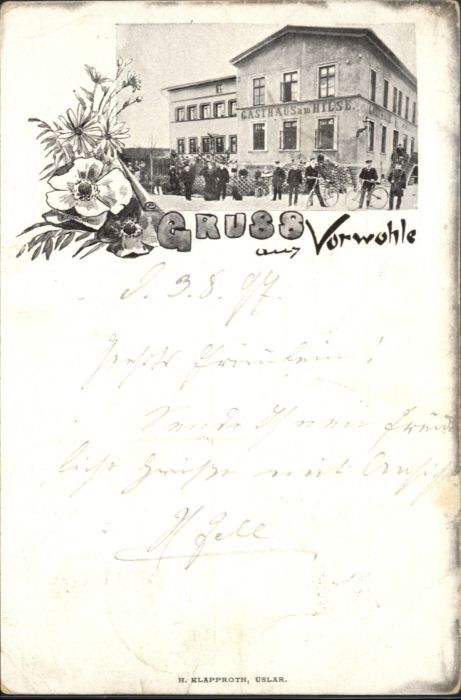 GASTHAUS am HILSE.
GRUSS
aus Vorwohle
d. 3.8.97.
Fräulein!
Sende Ihnen freund
liche Grüße mit Ansicht
H. KLAPPROTH, USLAR.